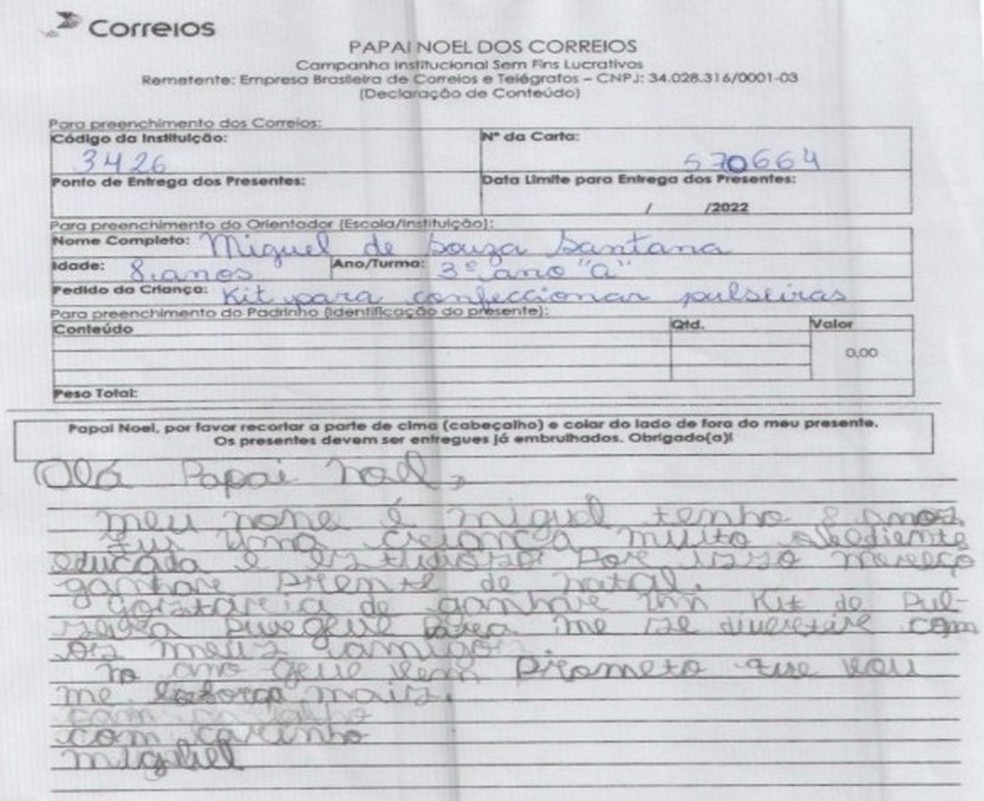 Correios
PAPAI NOEL DOS CORREIOS
Campanha Institucional Sem Fins Lucrativos
Remetente: Empresa Brasileira de Correios e Telégrafos – CNPJ: 34.028.316/0001-03
(Declaração de Conteúdo)
Para preenchimento dos Correios:
Código da Instituição: Nº da Carta:
3426 570664
Ponto de Entrega dos Presentes: Data Limite para Entrega dos Presentes:
/ /2022
Para preenchimento do Orientador (Escola/Instituição):
Nome Completo: Miguel de Souza Santana
Idade: 8 anos Ano/Turma: 3º ano "a"
Pedido da Criança: Kit para confeccionar pulseiras
Para preenchimento do Padrinho (Identificação do presente):
Conteúdo Qtd. Valor
0,00
Peso Total:
Papai Noel, por favor recortar a parte de cima (cabeçalho) e colar do lado de fora do meu presente.
Os presentes devem ser entregues já embrulhados. Obrigado(a)!
Olá Papai Noel,
meu none é miguel tenho 8 anos
fui uma criança muito obediente
educada e estudiosa Por isso mereço
ganhar prente de natal.
Gostaria de ganhar um Kit de Pul-
seira para me se divertir com
os meus amigos.
no ano que vem Prometo que vou
me mais.
com carinho
miguel